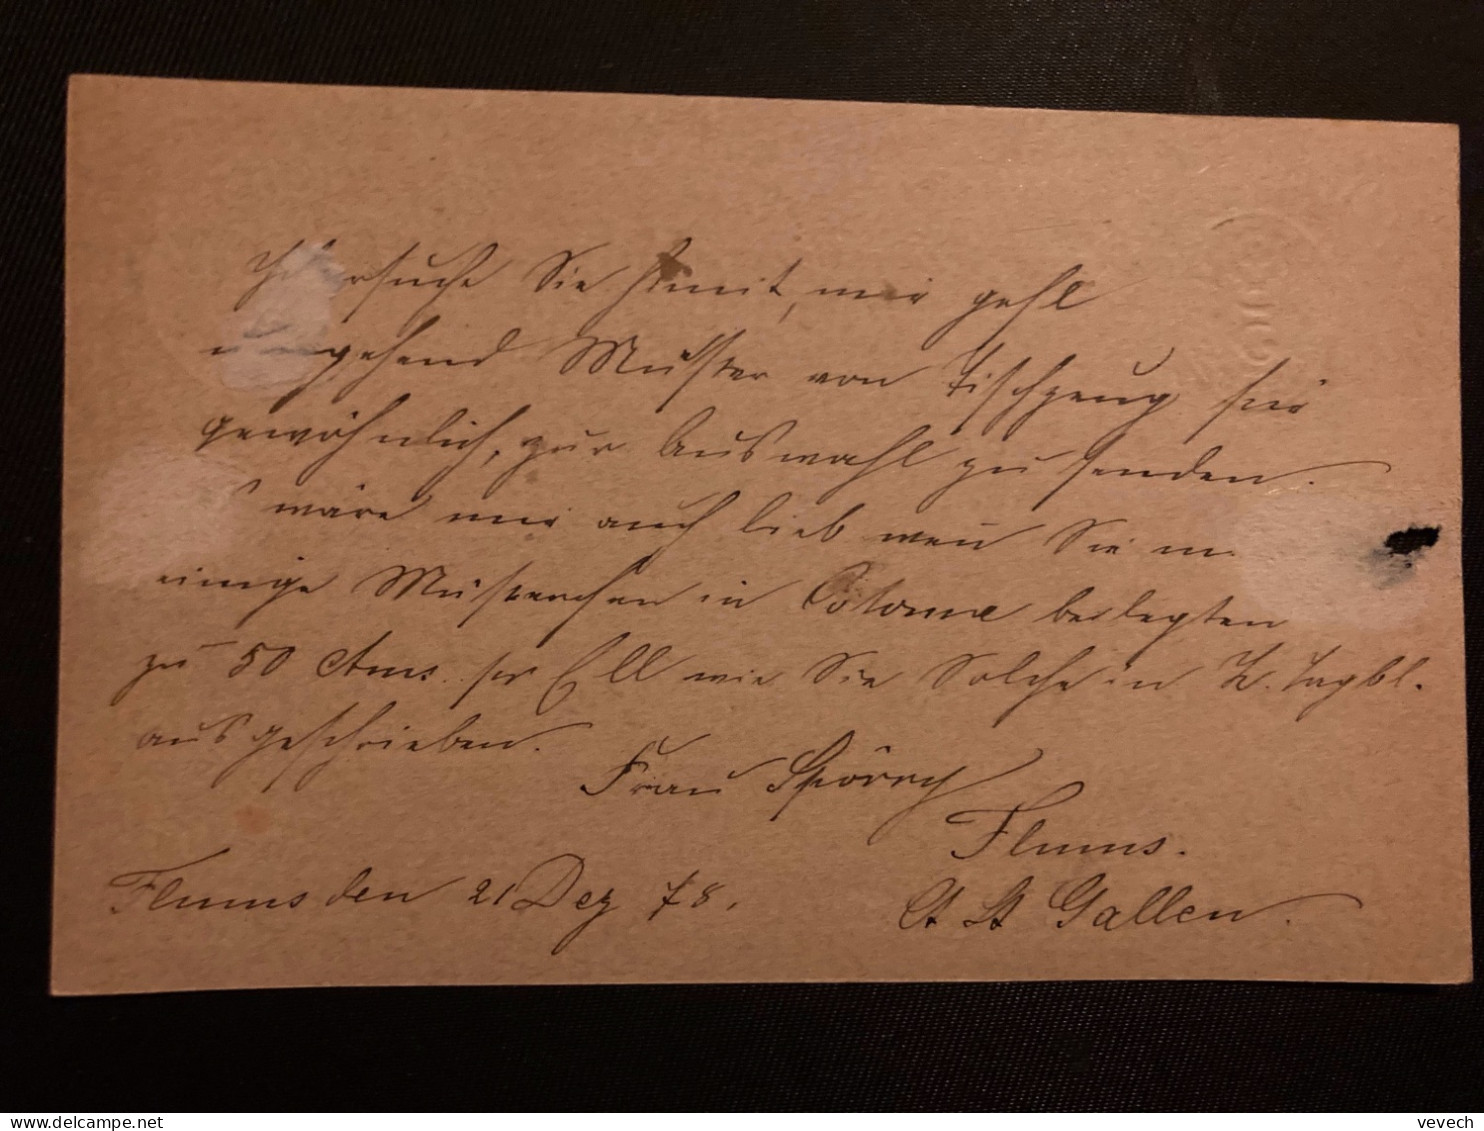 ersuche Sie hiemit, mir gefl
umgehend Muster von Tischzeug für
gewöhnlich, zur Auswahl zu senden.
wäre mir auch lieb wen Sie m
einige Müsterchen in Cotonne beilegten
zu 50 Cms. per Ell wie Sie Solche in Z. Tagbl.
ausgeschrieben.
Frau Spörry
Flums.
Ct St Gallen.
Flums den 21 Dez 78.
vevech